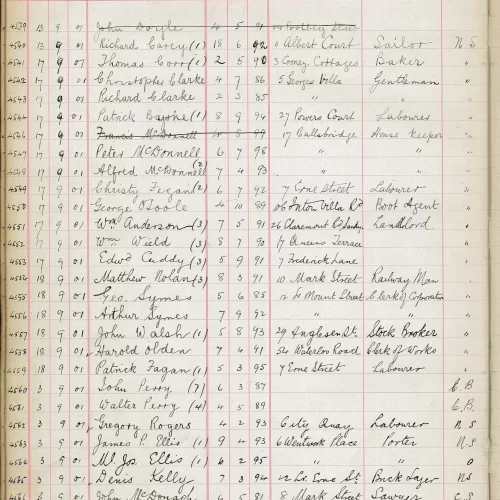 4539 13 9 01 John Doyle 4 5 91 Street
4540 13 9 01 Richard Carey (1) 18 6 92 Albert Court Sailor N.S
4541 17 9 01 Thomas Corr (1) 2 5 90 3 Cottages Baker "
4542 17 9 01 Christopher Clarke 4 7 86 5 Georges Villa Gentleman "
4543 17 9 01 Richard Clarke 2 3 85 " " "
17 9 01 Patrick Byrne (1) 8 9 94 27 Powers Court Labourer "
17 9 01 Francis McDonnell 17 Ballsbridge House keeper "
4547 17 9 01 Peter McDonnell 6 7 98 " "
17 9 01 Alfred McDonnell (2) 7 4 93 " "
4549 17 9 01 Christy Fegan (2) 6 7 92 7 Erne Street Labourer "
4550 17 9 01 George O'Toole 4 10 89 Villa Rd Boot Agent "
4551 17 9 01 Wm Anderson (3) 7 5 91 26 Claremont Rd Sandy. Landlord "
4552 17 9 01 Wm Wield (3) 8 7 90 17 Queens Terrace
4553 17 9 01 Edwd Cuddy (3) 5 9 91 7 Frederick Lane
18 9 01 Matthew Nolan (3) 8 3 91 10 Mark Street Railway Man
4555 18 9 01 Geo. Symes 5 6 85 12 Lr Mount Street Clerk of Corporation
4556 18 9 01 Arthur Symes 7 9 92 " " "
4557 18 9 01 John Walsh (1) 5 8 93 29 Anglesea St. Stock Broker "
4558 18 9 01 Harold Olden 7 4 91 54 Waterloo Road Clerk of Works "
4559 18 9 01 Patrick Fagan (1) 5 3 95 7 Erne Street Labourer "
4560 3 9 01 John Perry (7) 6 3 87 C.B.
4561 3 9 01 Walter Perry (4) 4 5 89 C.B.
4562 3 9 01 Gregory Rogers 4 2 93 City Quay Labourer N S
4563 3 9 01 James P. Ellis (1) 9 4 93 6 Wentwork Place Porter N.S
3 9 01 Jos Ellis (1) 6 2 95 " " O
4585 3 9 01 Denis Kelly 7 3 94 Lr Erne St Brick Layer NS
3 9 01 John McDonagh 4 5 81 8 Mark Street Sawyer